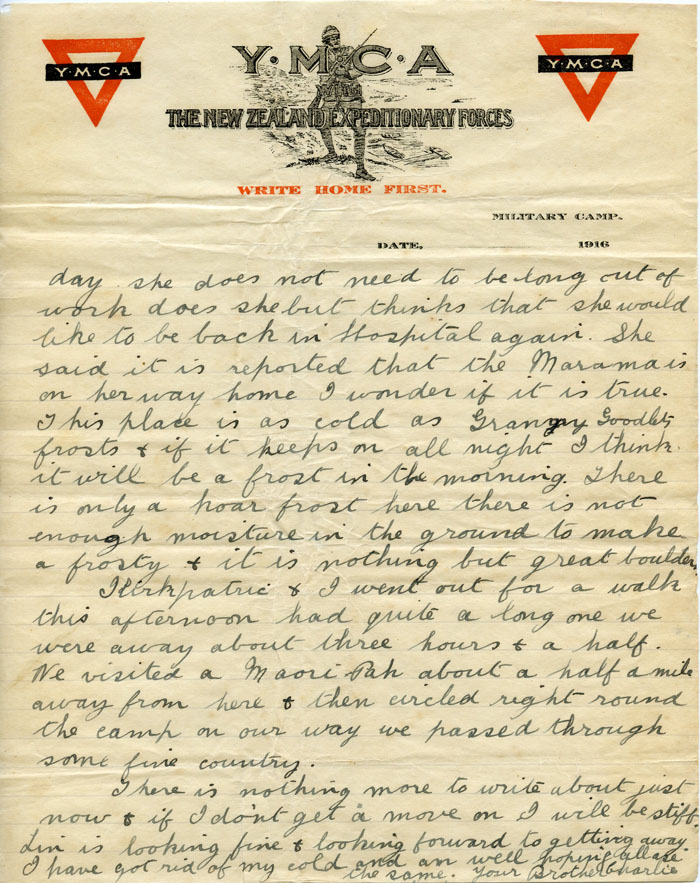 Y·M·C·A
Y·M·C·A
Y·M·C·A
THE NEW ZEALAND EXPEDITIONARY FORCES
WRITE HOME FIRST.
MILITARY CAMP.
DATE, 1916
day she does not need to be long out of
work does she but thinks that she would
like to be back in Hospital again. She
said it is reported that the Marama is
on her way home I wonder if it is true.
This place is as cold as Granny Goodlets
frosts & if it keeps on all night I think
it will be a frost in the morning. There
is only a hoar frost here there is not
enough moisture in the ground to make
a frosty & it is nothing but great boulders
Kirkpatric & I went out for a walk
this afternoon had quite a long one we
were away about three hours & a half.
We visited a Maori Pah about a half a mile
away from here & then circled right round
the camp on our way we passed through
some fine country.
There is nothing more to write about just
now & if I don't get a move on I will be stiff
Lin is looking fine & looking forward to getting away
I have got rid of my cold and am well hoping all are
the same. Your Brother Charlie